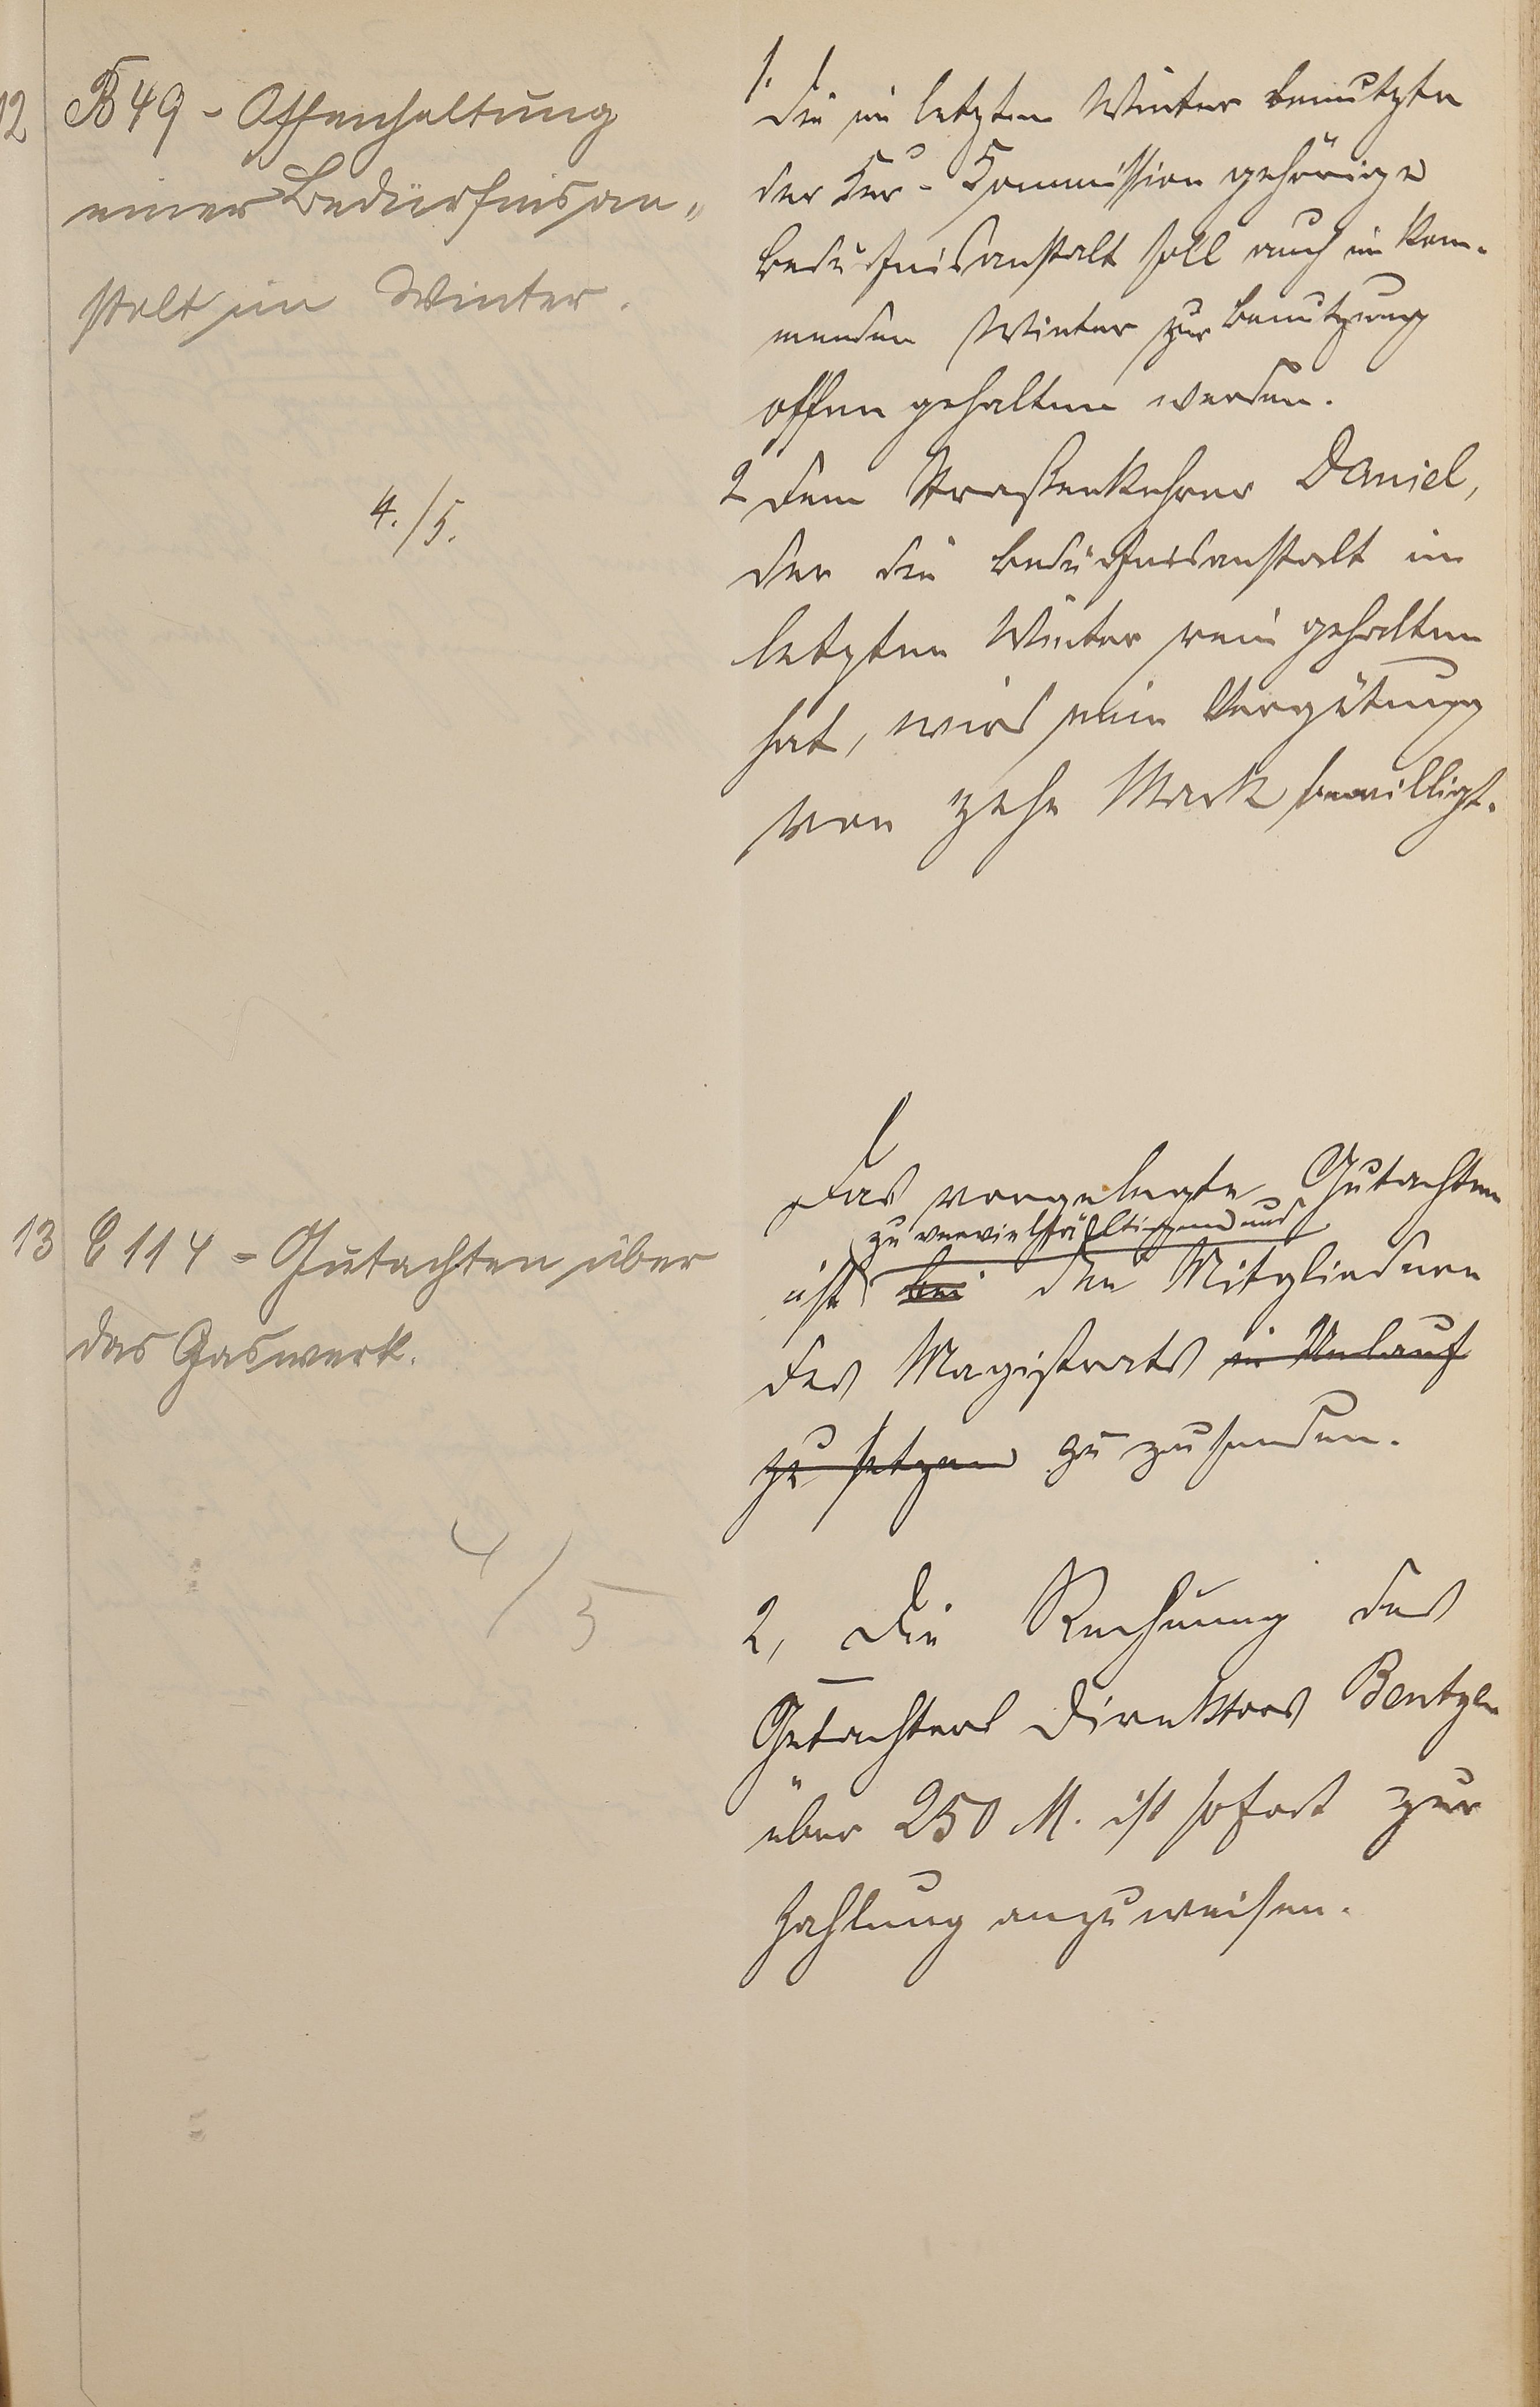 12
B 49 - Offenhaltung
einer Bedürfnisan-
stalt im Winter.
4./5.
1.
Die im letzten Winter benutzte
der Kur-Kommission gehörige
Bedürfnisanstalt soll auch im kom-
menden Winter zur Benutzung
offen gehalten werden.
2 Dem Straßenkehrer Daniel,
der die Bedürfnisanstalt im
letzten Winter rein gehalten
hat, wird eine Vergütung
von zehn Mark bewilligt.
13
C 114 = Gutachten über
das Gaswerk.
4/5
Das vorgelegte Gutachten
zu vervielfältigen und
ist bei den Mitgliedern
des Magistrats in Umlauf
zu setzen zu zusenden.
2, Die Rechnung des
Gutachters Direktors Bentzen
über 250 M. ist sofort zur
Zahlung anzuweisen.